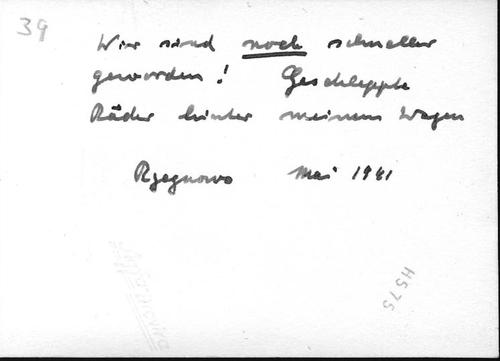 39
Wir sind noch schneller
geworden! Geschleppte
Räder hinter meinem Wagen
Rzegnowo Mai 1941
H575